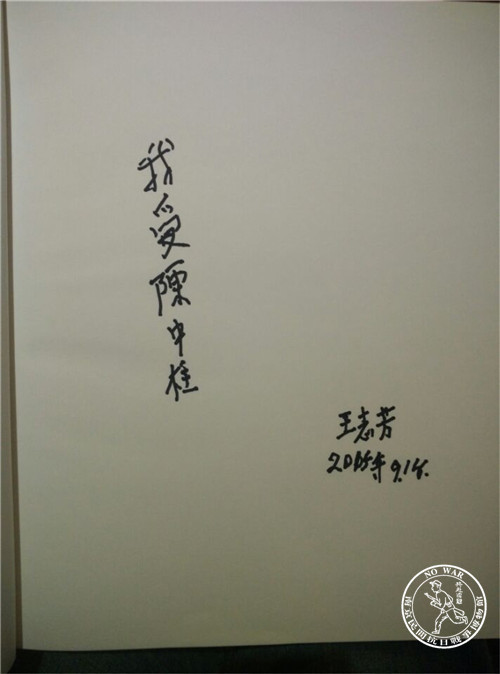 我爱陳中柱
王志芳
2015年
NO WAR
南京民間抗日戰爭博物館